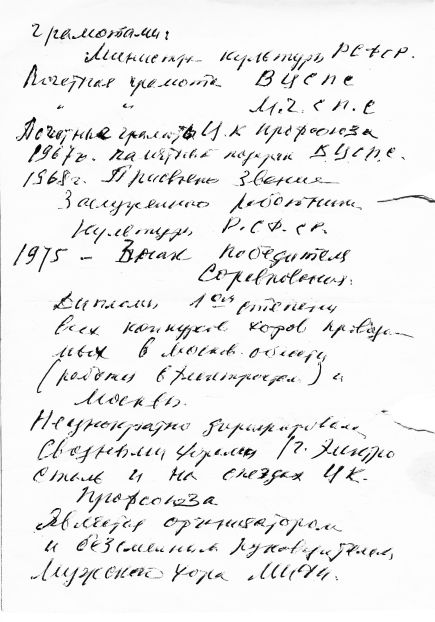 грамотами:
Министра культуры РСФСР.
Почетная грамота ВЦСПС
" " М.Г.СПС
Почетные грамоты Ц.К профсоюза
1967г. памятный подарок ВЦСПС.
1968г. Присвоено звание
Заслуженного работника
культуры Р.С.Ф.СР.
1975 – Значок победителя
Соревнования.
Дипломы 1ой степени
всех конкурсов хоров проводи-
мых в Москов. области
(работы в Электростали) и
Москвы.
Неоднократно дирижировал
Сводными хорами /г. Электро
сталь и на съездах ЦК.
Профсоюза
Является организатором
и безсменным руководителем
Мужского хора